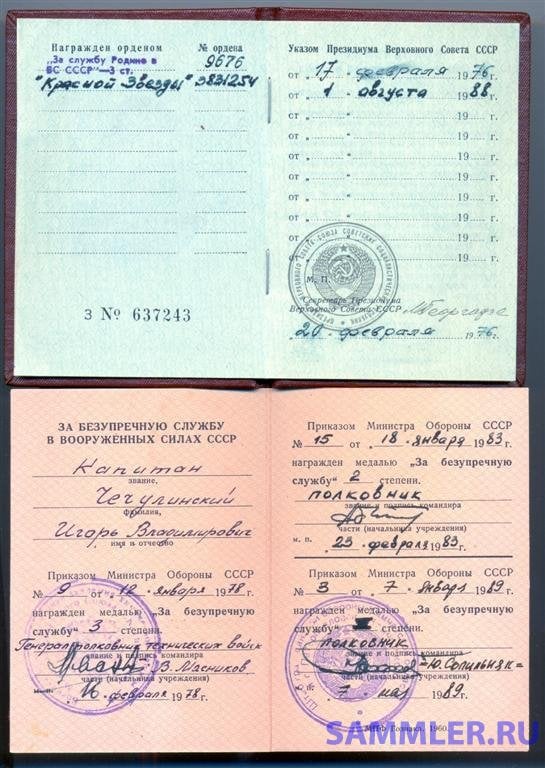 Награжден орденом
№ ордена
"За службу Родине в
ВС СССР"—3 ст.
9676
"Красной Звезды" 3831254
З № 637243
Указом Президиума Верховного Совета СССР
от „ 17 " февраля 1976 г.
от „ 1 " августа 1988 г.
от „ " 19 г.
от „ " 19 г.
от „ " 19 г.
от „ " 19 г.
от „ " 19 г.
от „ " 19 г.
от „ " 19 г.
от „ " 19 г.
М. П.
Секретарь Президиума
Верховного Совета СССР
20 февраля 1976 г.
ЗА БЕЗУПРЕЧНУЮ СЛУЖБУ
В ВООРУЖЁННЫХ СИЛАХ СССР
Капитан
звание,
Чечулинский
фамилия,
Игорь Владимирович
имя и отчество
Приказом Министра Обороны СССР
№ 9 от „ 12 " января 1978 г.
награжден медалью „За безупречную
службу" 3 степени.
Генерал-полковник технических войск
звание и подпись командира
В. Мясников
части (начальника учреждения)
16 февраля 1978 г.
Приказом Министра Обороны СССР
№ 15 от „ 18 " января 1983 г.
награжден медалью „За безупречную
службу" 2 степени.
полковник
звание и подпись командира
части (начальника учреждения)
м. п. 23 февраля 1983 г.
Приказом Министра Обороны СССР
№ 3 от „ 7 " января 1989 г.
награжден медалью „За безупречную
службу" I степени.
полковник
звание и подпись командира
части (начальника учреждения)
7 мая 1989 г.
МПФ Гознака. 1960.
SAMMLER.RU